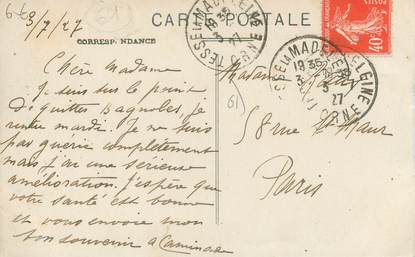 6-€
3/7/27
CARTE POSTALE
CORRESPONDANCE
Chère Madame
Je suis sur le point
de quitter Bagnoles, je
rentre mardi. Je ne suis
pas guérie complètement
mais j'ai une sérieuse
amélioration. J'espère que
votre santé est bonne
et vous envoie mon
bon souvenir
TESSÉ LA MADELEINE
ORNE
18 35
3 - 7
27
TESSÉ LA MADELEINE
ORNE
18 35
3 - 7
27
POSTES
40c
61
Madame
58 rue St Maur
Paris